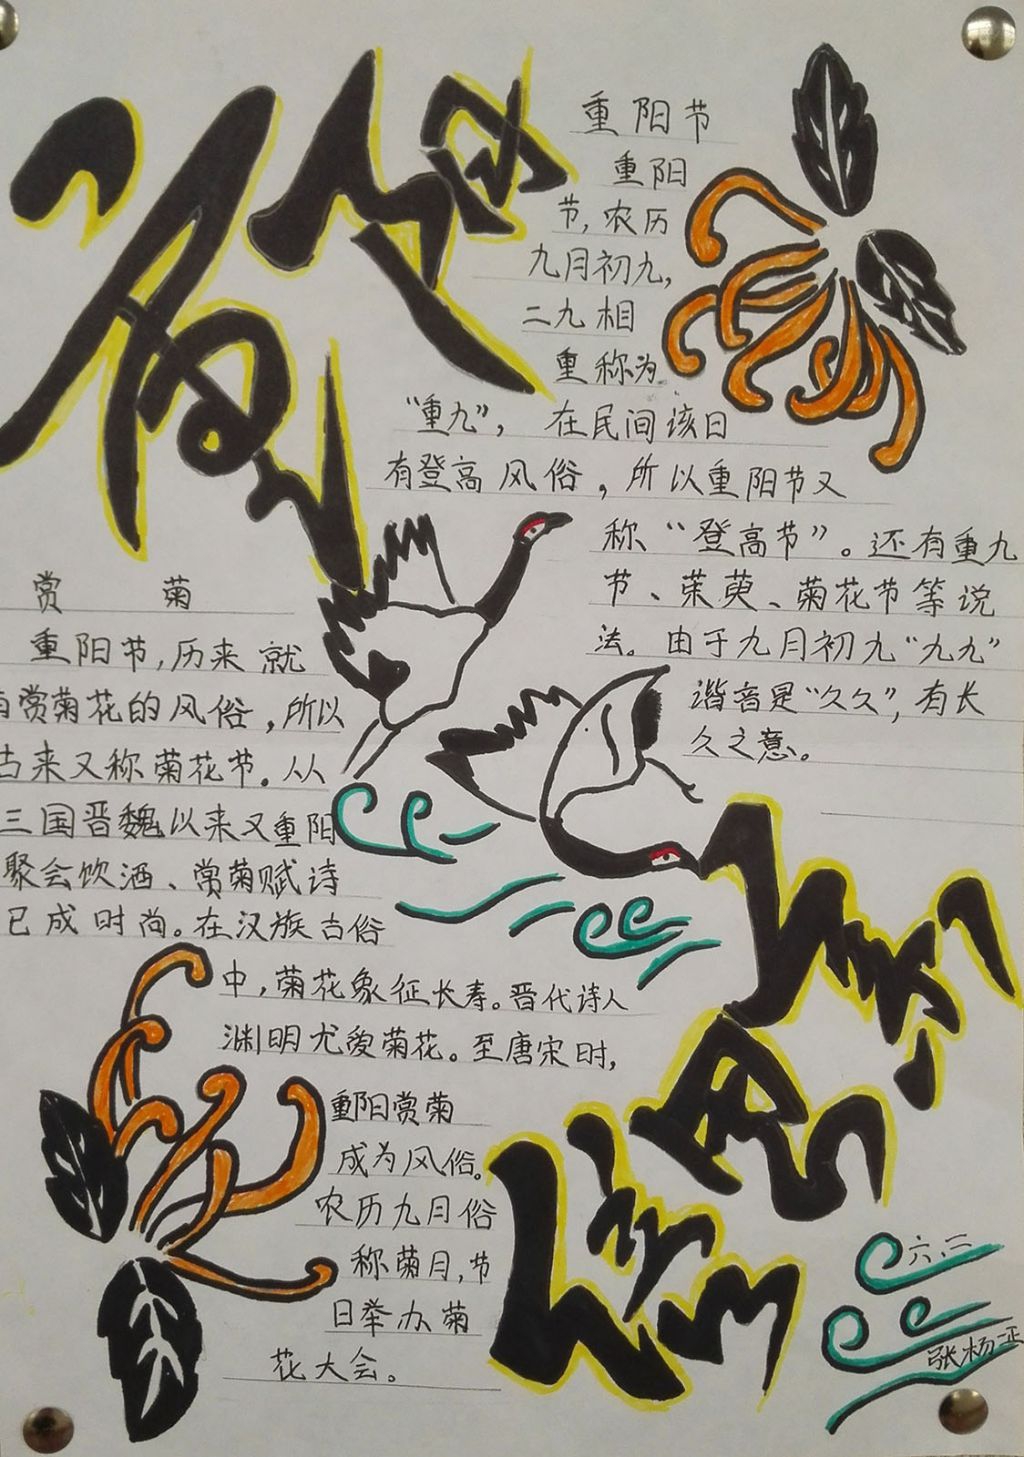 重阳
重阳节
重阳
节，农历
九月初九，
二九相
重称为
“重九”，在民间该日
有登高风俗，所以重阳节又
称“登高节”。还有重九
节、茱萸、菊花节等说
法。由于九月初九“九九”
谐音是“久久”，有长
久之意。
赏菊
重阳节，历来就
有赏菊花的风俗，所以
古来又称菊花节。从
三国晋魏以来又重阳
聚会饮酒、赏菊赋诗
已成时尚。在汉族古俗
中，菊花象征长寿。晋代诗人
渊明尤爱菊花。至唐宋时，
重阳赏菊
成为风俗。
农历九月俗
称菊月，节
日举办菊
花大会。
六.二
张杨